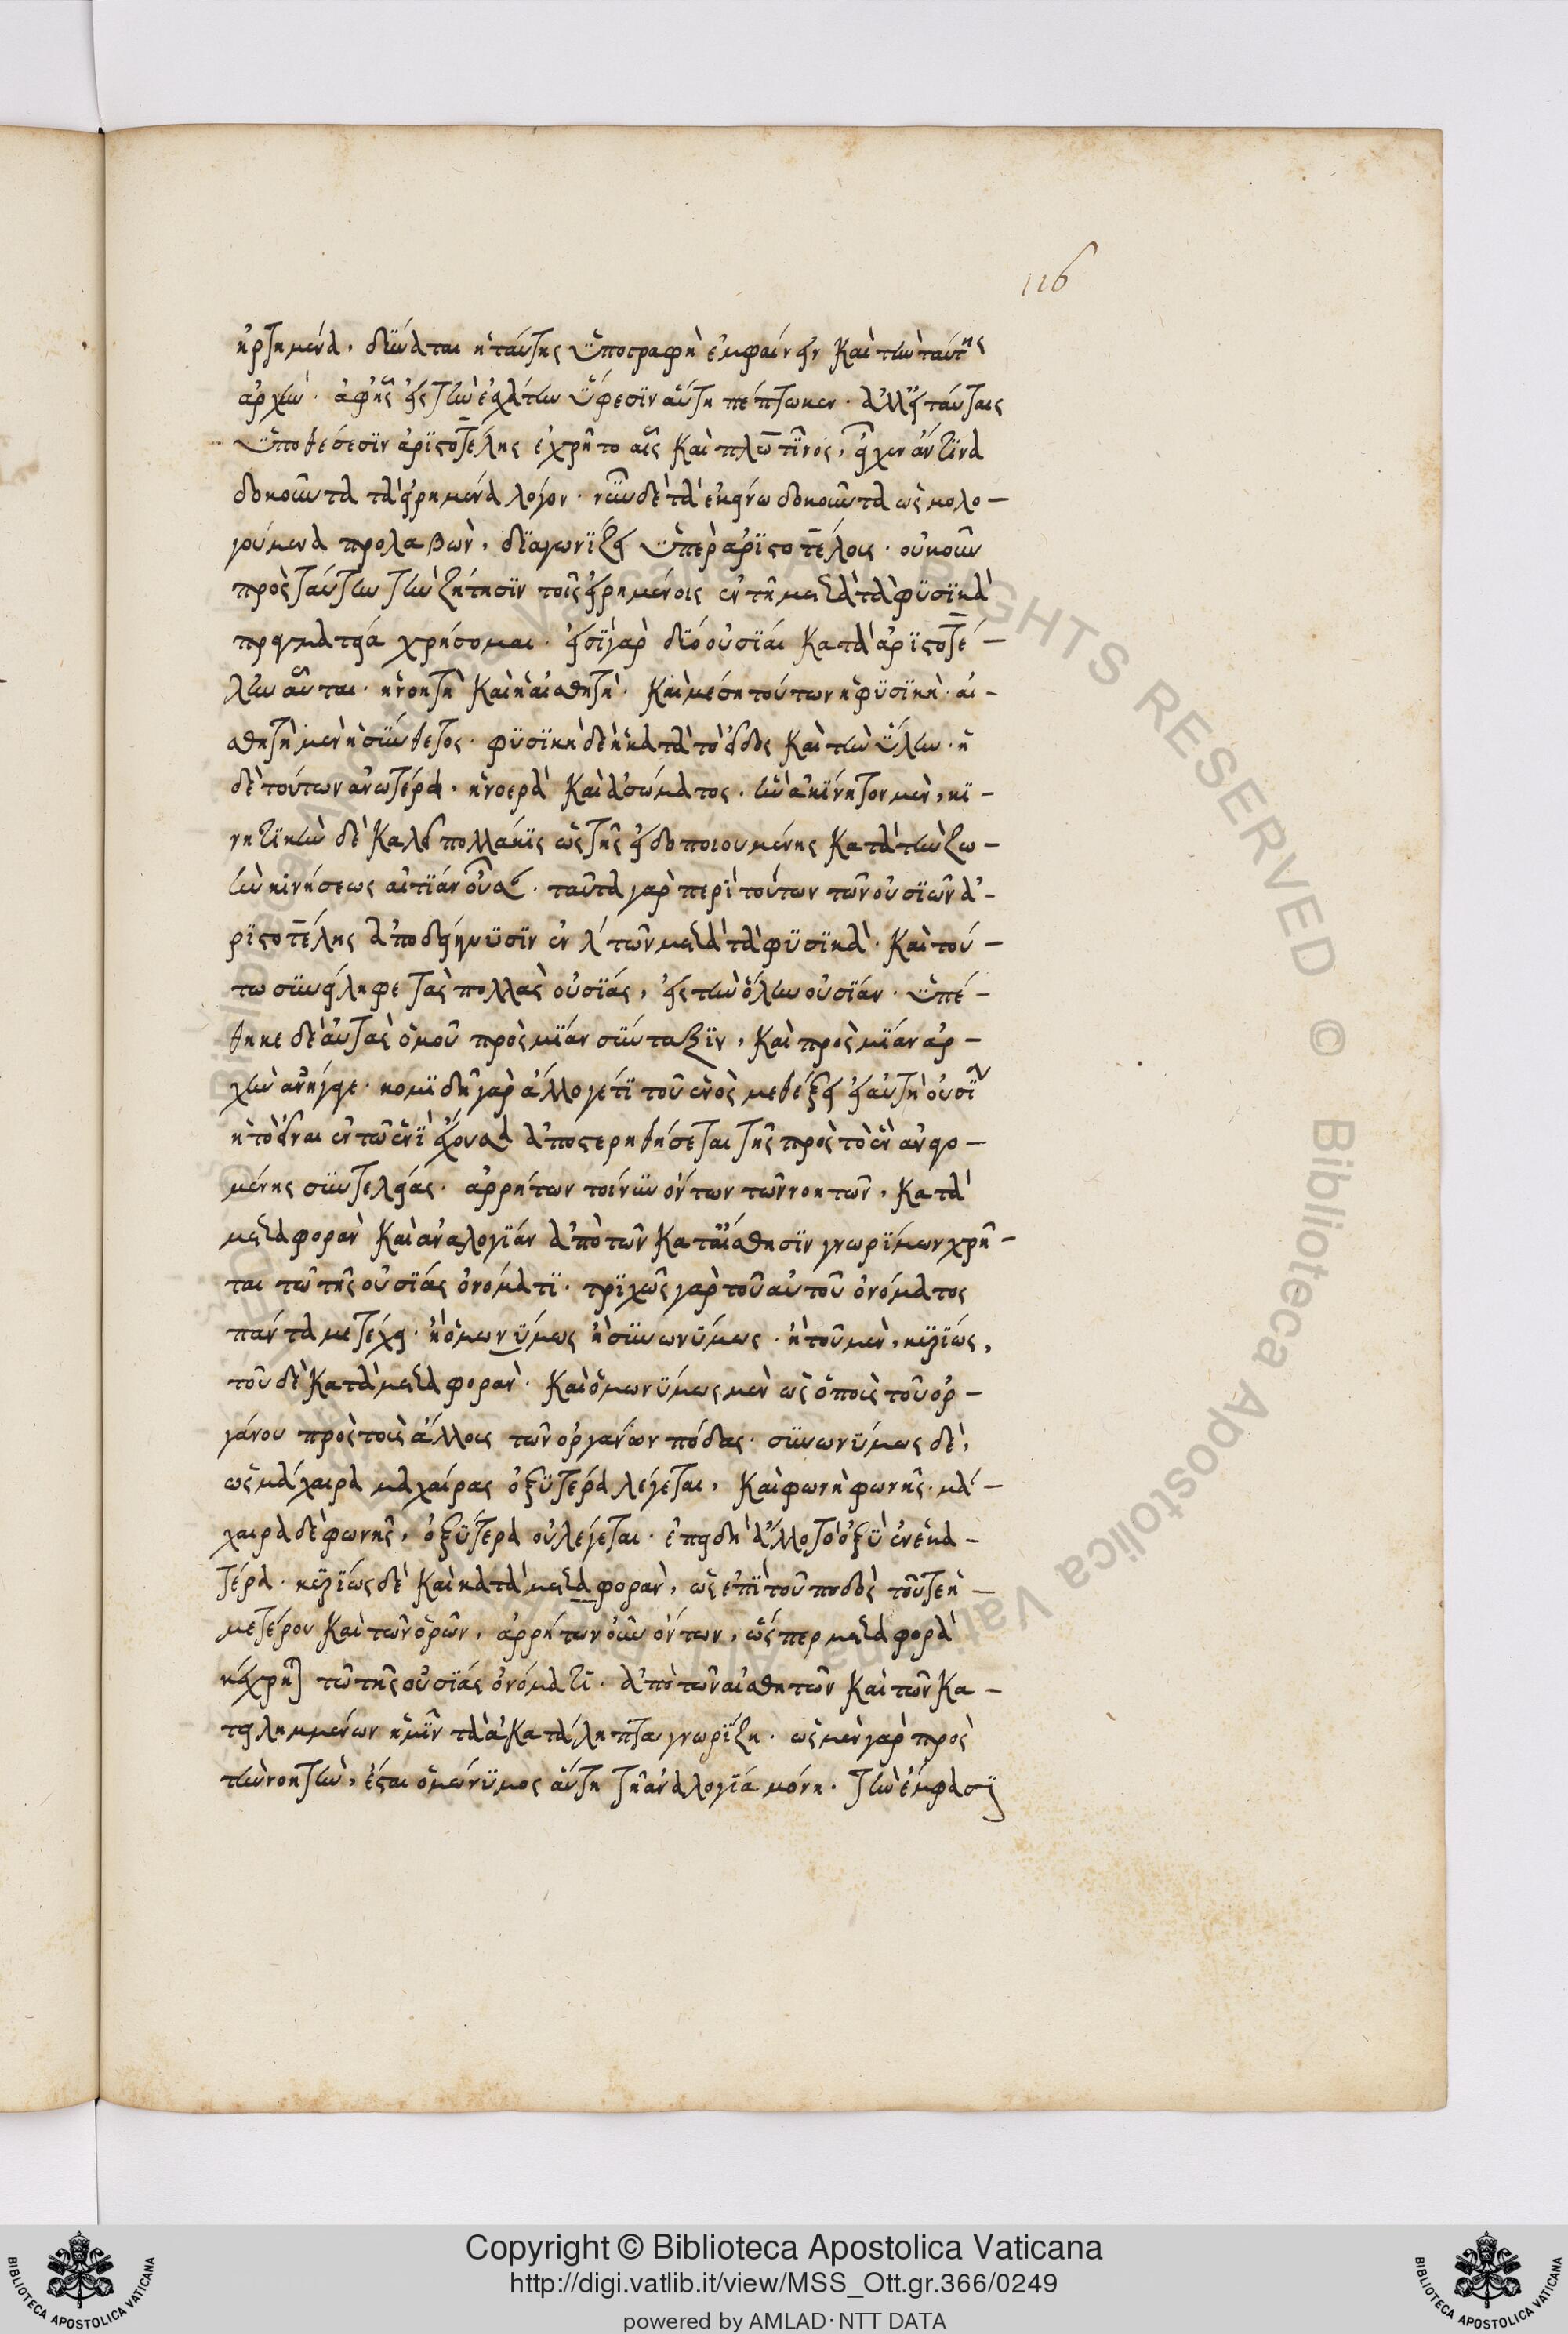 116
ἠρτημένα. δύναται ἡ ταύτης ὑπογραφὴ ἐμφαίνειν καὶ τὴν ταύτης
ἀρχὴν. ἀφ' ἧς εἰς τὴν ἐσχάτην ὕφεσιν αὕτη πέπτωκεν. ἀλλ' εἰ ταύταις
ὑποθέσεσιν ἀριστοτέλης ἐχρῆτο αἷς καὶ πλωτῖνος, εἶχεν ἄν τινα
δοκοῦντα τὰ εἰρημένα λόγον. νῦν δὲ τὰ ἐκείνω δοκοῦντα ὡς ὁμολο-
γούμενα προλαβὼν, διαγωνίζει ὑπὲρ ἀριστοτέλους. οὐκοῦν
πρὸς ταύτην τὴν ζήτησιν τοῖς εἰρημένοις ἐν τῇ μετὰ τὰ φυσικὰ
πραγματεία χρήσομαι. εἰσὶ γὰρ δύο οὐσίαι κατὰ ἀριστοτέ-
λην αὗται. ἡ νοητὴ καὶ ἡ αἰσθητὴ. καὶ μέση τούτων ἡ φυσικὴ. αἰ-
σθητὴ μὲν ἡ σύνθετος. φυσικὴ δὲ ἡ κατὰ τὸ εἶδος καὶ τὴν ὕλην. ἡ
δὲ τούτων ἀνωτέρα. ἡ νοερὰ καὶ ἀσώματος. ἣν ἀκίνητον μὲν, κι-
νητικὴν δὲ καλεῖ πολλάκις ὡς τῆς εἰδοποιουμένης κατὰ τὴν ζω-
ὴν κινήσεως αἰτίαν οὖσαν. ταῦτα γὰρ περὶ τούτων τῶν οὐσιῶν ἀ-
ριστοτέλης ἀποδείκνυσιν ἐν λ τῶν μετὰ τὰ φυσικὰ. καὶ τού-
τω συνείληφε τὰς πολλὰς οὐσίας, εἰς τὴν ὅλην οὐσίαν. ὑπέ-
θηκε δὲ αὐτὰς ὁμοῦ πρὸς μίαν σύνταξιν, καὶ πρὸς μίαν ἀρ-
χὴν ἀνήγαγε. κομιδῇ γὰρ ἄλλο γέ τι τοῦ ἑνὸς μεθέξει εἰ αὐτὴ οὐσία
ἡ τὸ εἶναι ἐν τῶ ἑνὶ ἔχουσα ἀποστερηθήσεται τῆς πρὸς τὸ ἓν ἀναφερο-
μένης συντελείας. ἀρρήτων τοίνυν ὄντων τῶν νοητῶν, κατὰ
μεταφορὰν καὶ ἀναλογίαν ἀπὸ τῶν κατ' αἴσθησιν γνωρίμων χρῆ-
ται τῶ τῆς οὐσίας ὀνόματι. τριχῶς γὰρ τοῦ αὐτοῦ ὀνόματος
πάντα μετέχει. ἢ ὁμωνύμως ἢ συνωνύμως. ἢ τοῦ μὲν, κυρίως,
τοῦ δὲ κατὰ μεταφορὰν. καὶ ὁμωνύμως μὲν ὡς ὁ ποὺς τοῦ ὀρ-
γάνου πρὸς τοὺς ἄλλους τῶν ὀργάνων πόδας. συνωνύμως δὲ,
ὡς μάχαιρα μαχαίρας ὀξυτέρα λέγεται, καὶ φωνὴ φωνῆς. μά-
χαιρα δὲ φωνῆς, ὀξυτέρα οὐ λέγεται. ἐπειδὴ ἄλλο τὸ ὀξὺ ἐν ἑκα-
τέρα. κυρίως δὲ καὶ κατὰ μεταφορὰν, ὡς ἐπὶ τοῦ ποδὸς τοῦ τε ἡ-
μετέρου καὶ τῶν ὀρῶν, ἀρρήτων οὖν ὄντων, ὥσπερ μεταφορὰ
κέχρηται τῶ τῆς οὐσίας ὀνόματι. ἀπὸ τῶν αἰσθητῶν καὶ τῶν κα-
τειλημμένων ἡμῖν τὰ ἀκατάληπτα γνωρίζη. ὡς μὲν γὰρ πρὸς
τὴν νοητὴν, ἔσται ὁμώνυμος αὕτη τῇ ἀναλογία μόνη. τὴν ἔμφασιν
Copyright © Biblioteca Apostolica Vaticana
http://digi.vatlib.it/view/MSS_Ott.gr.366/0249
powered by AMLAD·NTT DATA